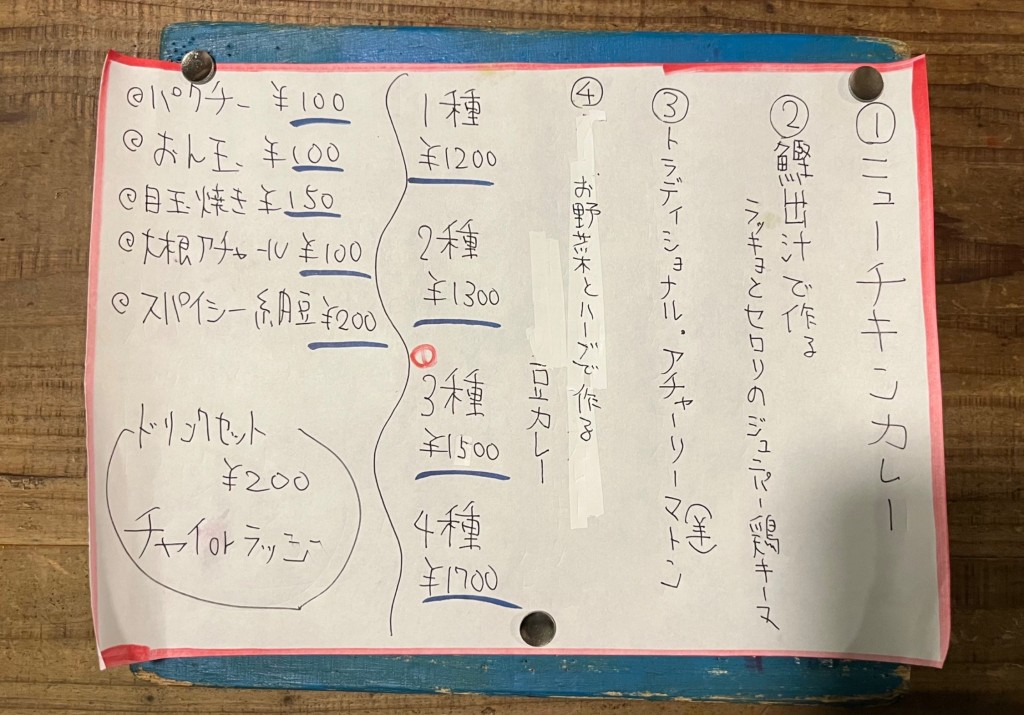 ①ニューチキンカレー
②鰹出汁で作る
ラッキョとセロリのジュニパー鶏キーマ
③トラディショナル・アチャーリーマトン(羊)
④お野菜とハーブで作る
豆カレー
1種
¥1200
2種
¥1300
3種
¥1500
4種
¥1700
@パクチー ¥100
@おん玉、¥100
@目玉焼き ¥150
@大根アチャール ¥100
@スパイシー納豆 ¥200
ドリンクセット
¥200
チャイorラッシー